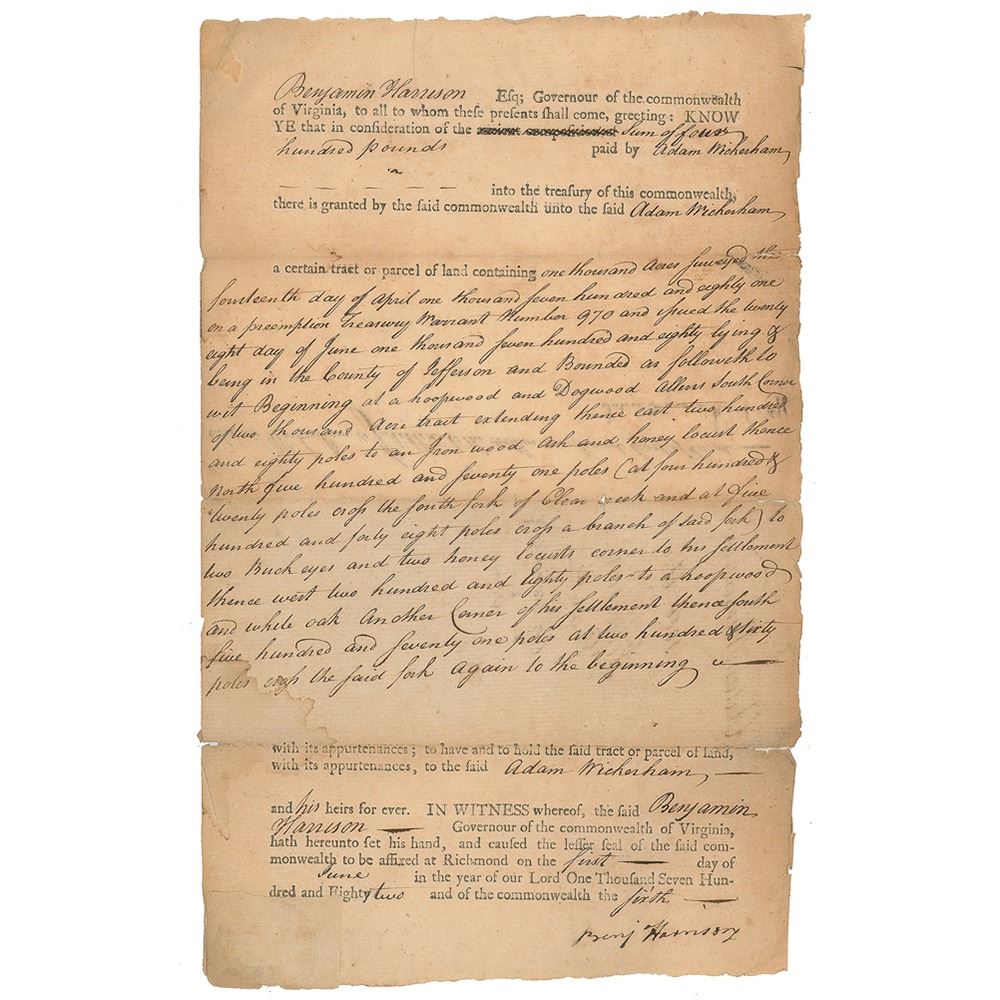 Benjamin Harrison Esq; Governour of the commonwealth
of Virginia, to all to whom theſe preſents ſhall come, greeting: KNOW
YE that in conſideration of the Sum of four
hundred pounds paid by Adam Wickerham,
into the treaſury of this commonwealth,
there is granted by the ſaid commonwealth unto the ſaid Adam Wickerham,
a certain tract or parcel of land containing one thousand Acres ſurveyed the
fourteenth day of April one thousand ſeven hundred and eighty one
on a preemption Treasury Warrant Number 970 and iſsued the twenty
eight day of June one thousand ſeven hundred and eighty lying &
being in the County of Jefferson and Bounded as followeth to
wit Beginning at a hoopwood and Dogwood Allens South Corner
of two thousand Acre tract extending thence east two hundred
and eighty poles to an Iron wood Ash and honey locust thence
north five hundred and ſeventy one poles (at four hundred &
twenty poles croſs the fourth fork of Clear and at five
hundred and forty eight poles croſs a branch of said fork) to
two Buckeyes and two honey locusts corner to his ſettlement
thence west two hundred and Eighty poles to a hoopwood
and white oak Another Corner of his ſettlement thence ſouth
five hundred and ſeventy one poles at two hundred & sixty
poles croſs the ſaid fork again to the beginning
with its appurtenances; to have and to hold the ſaid tract or parcel of land,
with its appurtenances, to the ſaid Adam Wickerham,
and his heirs for ever. IN WITNESS whereof, the ſaid Benjamin
Harrison Governour of the commonwealth of Virginia,
hath hereunto ſet his hand, and cauſed the leſſer ſeal of the ſaid com-
monwealth to be affixed at Richmond on the first day of
June in the year of our Lord One Thouſand Seven Hun-
dred and Eighty two and of the commonwealth the ſixth
Benj Harrison